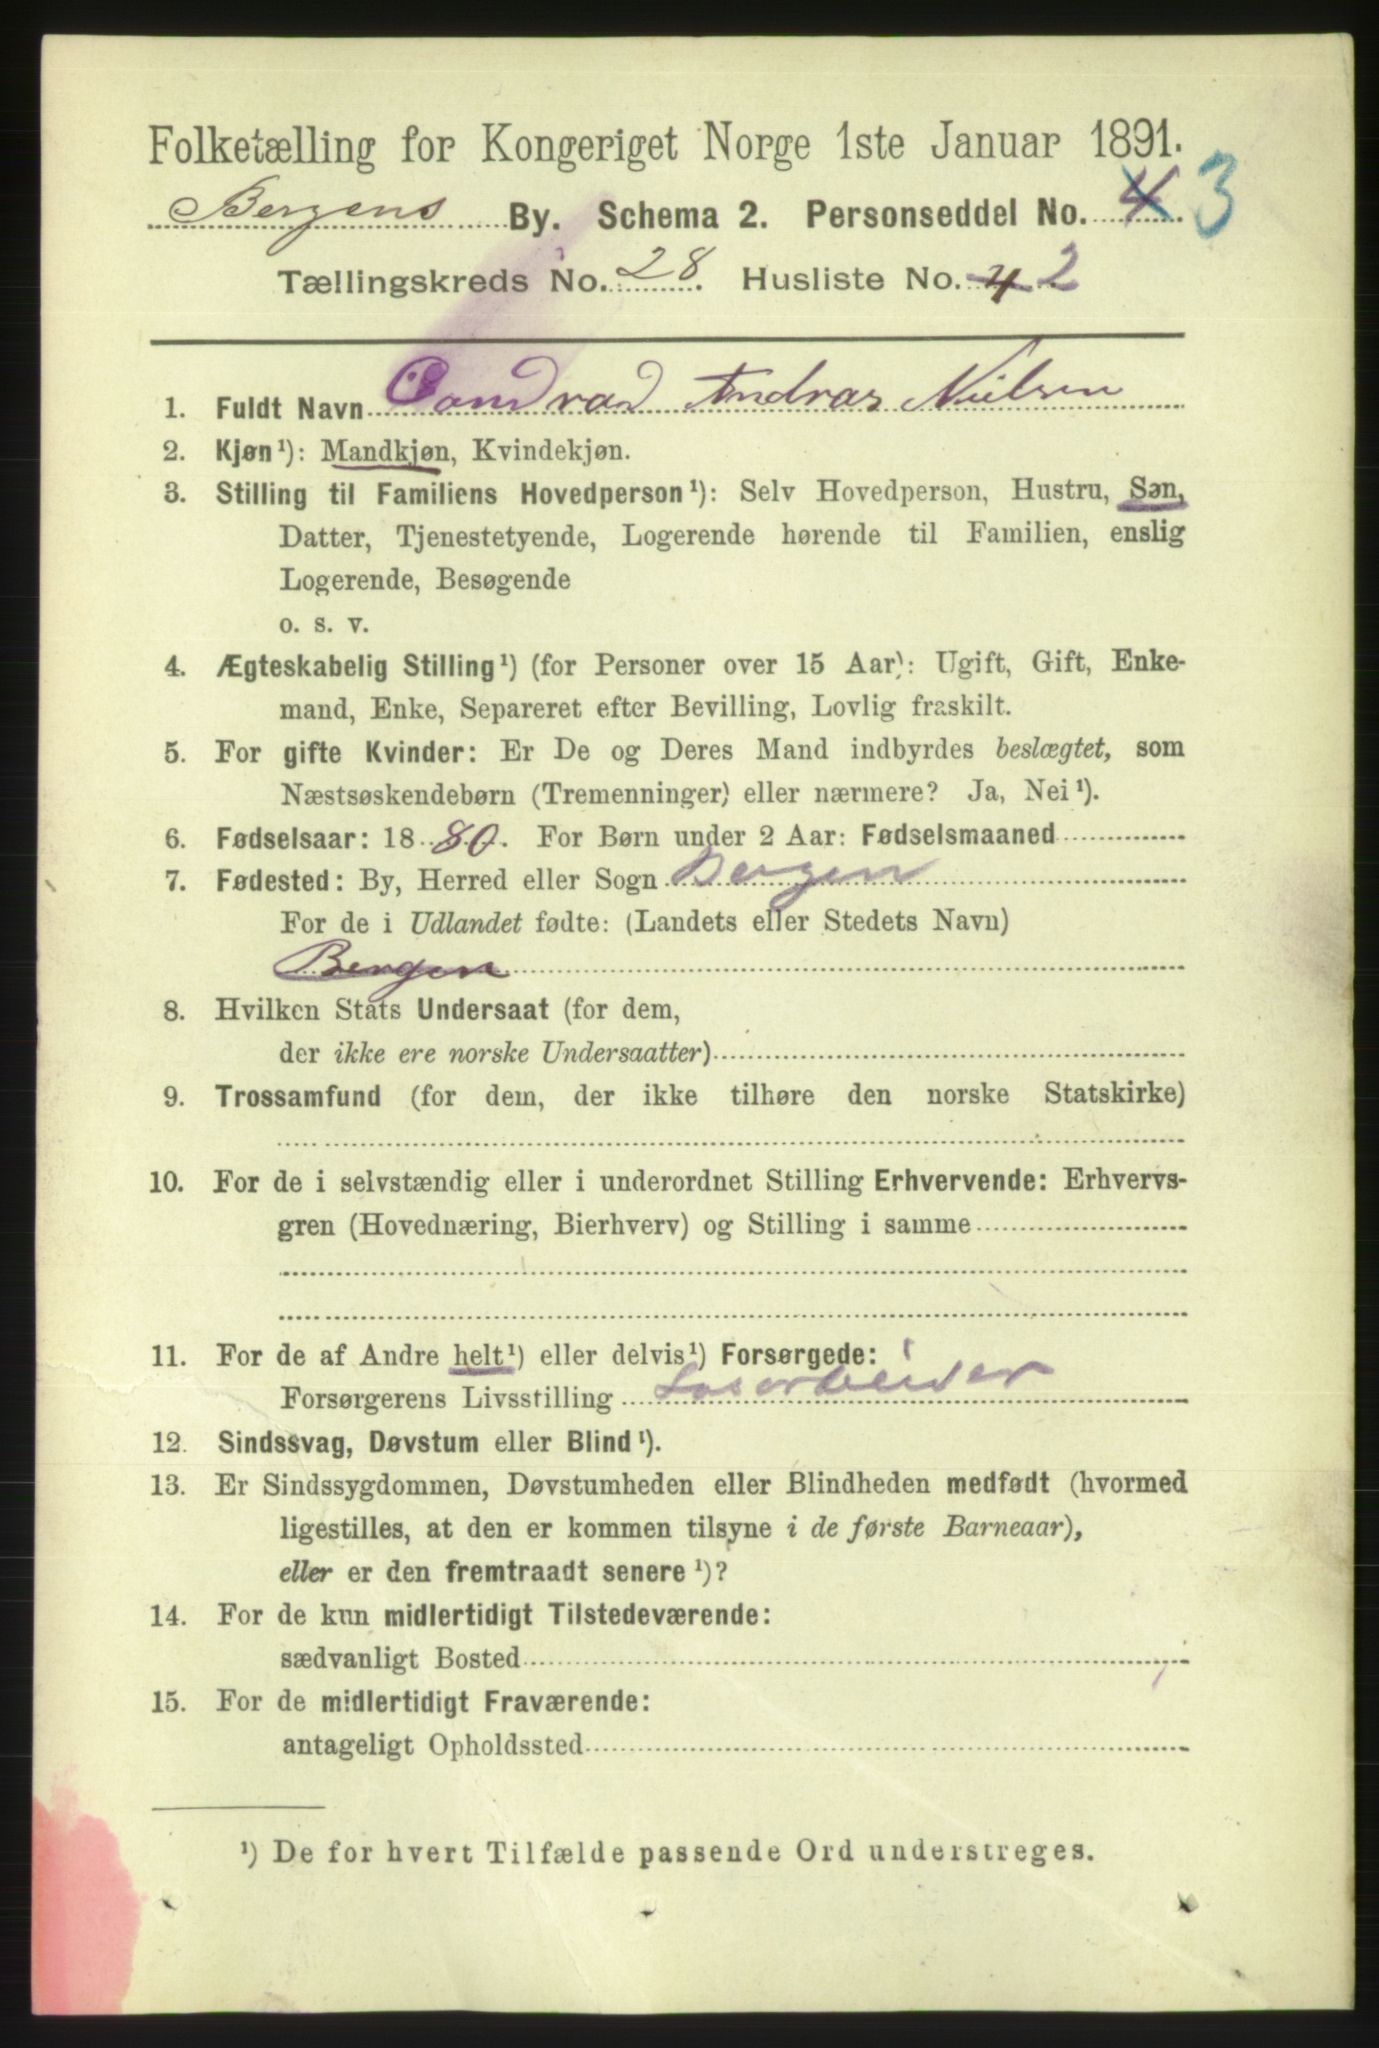 Folketælling for Kongeriget Norge 1ste Januar 1891.
Bergens By. Schema 2. Personseddel No. 4 3
Tællingskreds No. 28. Husliste No. 4 2
1. Fuldt Navn Condrad Andras Nielsen
2. Kjøn¹): Mandkjøn, Kvindekjøn.
3. Stilling til Familiens Hovedperson¹): Selv Hovedperson, Hustru, Søn,
Datter, Tjenestetyende, Logerende hørende til Familien, enslig
Logerende, Besøgende
o. s. v.
4. Ægteskabelig Stilling¹) (for Personer over 15 Aar): Ugift, Gift, Enke-
mand, Enke, Separeret efter Bevilling, Lovlig fraskilt.
5. For gifte Kvinder: Er De og Deres Mand indbyrdes beslægtet, som
Næstsøskendebørn (Tremenninger) eller nærmere? Ja, Nei¹).
6. Fødselsaar: 1880. For Børn under 2 Aar: Fødselsmaaned
7. Fødested: By, Herred eller Sogn Bergen
For de i Udlandet fødte: (Landets eller Stedets Navn)
Bergen
8. Hvilken Stats Undersaat (for dem,
der ikke ere norske Undersaatter)
9. Trossamfund (for dem, der ikke tilhøre den norske Statskirke)
10. For de i selvstændig eller i underordnet Stilling Erhvervende: Erhvervs-
gren (Hovednæring, Bierhverv) og Stilling i samme
11. For de af Andre helt¹) eller delvis¹) Forsørgede:
Forsørgerens Livsstilling Løsarbeider
12. Sindssvag, Døvstum eller Blind¹).
13. Er Sindssygdommen, Døvstumheden eller Blindheden medfødt (hvormed
ligestilles, at den er kommen tilsyne i de første Barneaar),
eller er den fremtraadt senere¹)?
14. For de kun midlertidigt Tilstedeværende:
sædvanligt Bosted
15. For de midlertidigt Fraværende:
antageligt Opholdssted
¹) De for hvert Tilfælde passende Ord understreges.